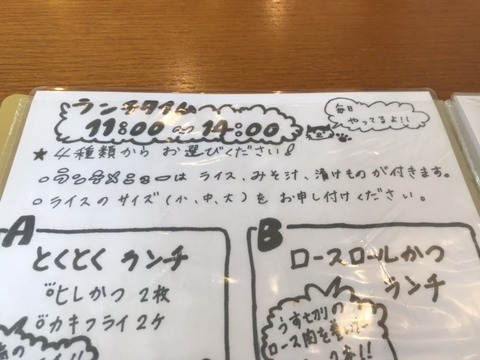 ランチタイム
11:00〜14:00
毎日
やってるよ!!
★4種類からお選びください!
○ は ライス、みそ汁、漬けものが付きます。
○ライスのサイズ(小、中、大)をお申し付けください。
A
とくとくランチ
ヒレかつ 2枚
カキフライ 2ケ
B
ロースロールかつ
ランチ
うす切りの
ロース肉を